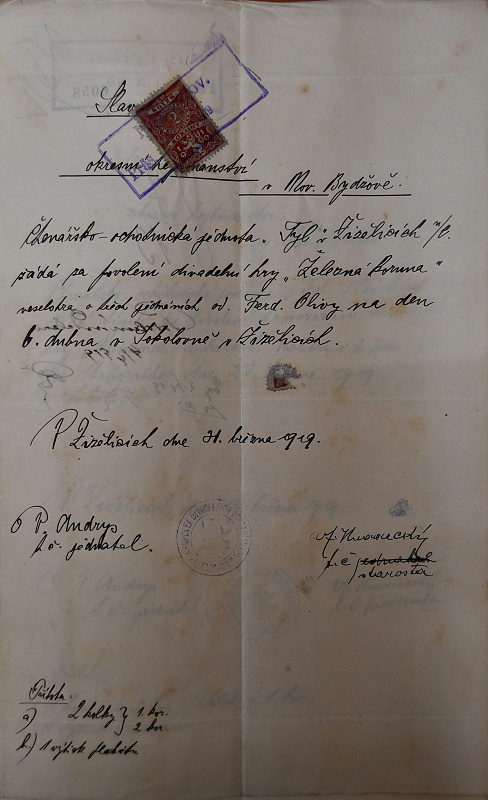 Slav
okresní hejtmanství
v Nov. Bydžově.
Čtenářsko-ochotnická jednota „Tyl" v Žiželicích n/C.
žádá za povolení divadelní hry „Železná koruna"
veselohra o třech jednáních od Ferd. Olivy na den
6. dubna v Sokolovně v Žiželicích.
V Žiželicích dne 31. března 1919.
V. Andrys
t. č. jednatel.
t. č.
starosta
Příloha.
a) 2 kolky } 1 kor.
2 kor
b.) 1 výtisk plakátu